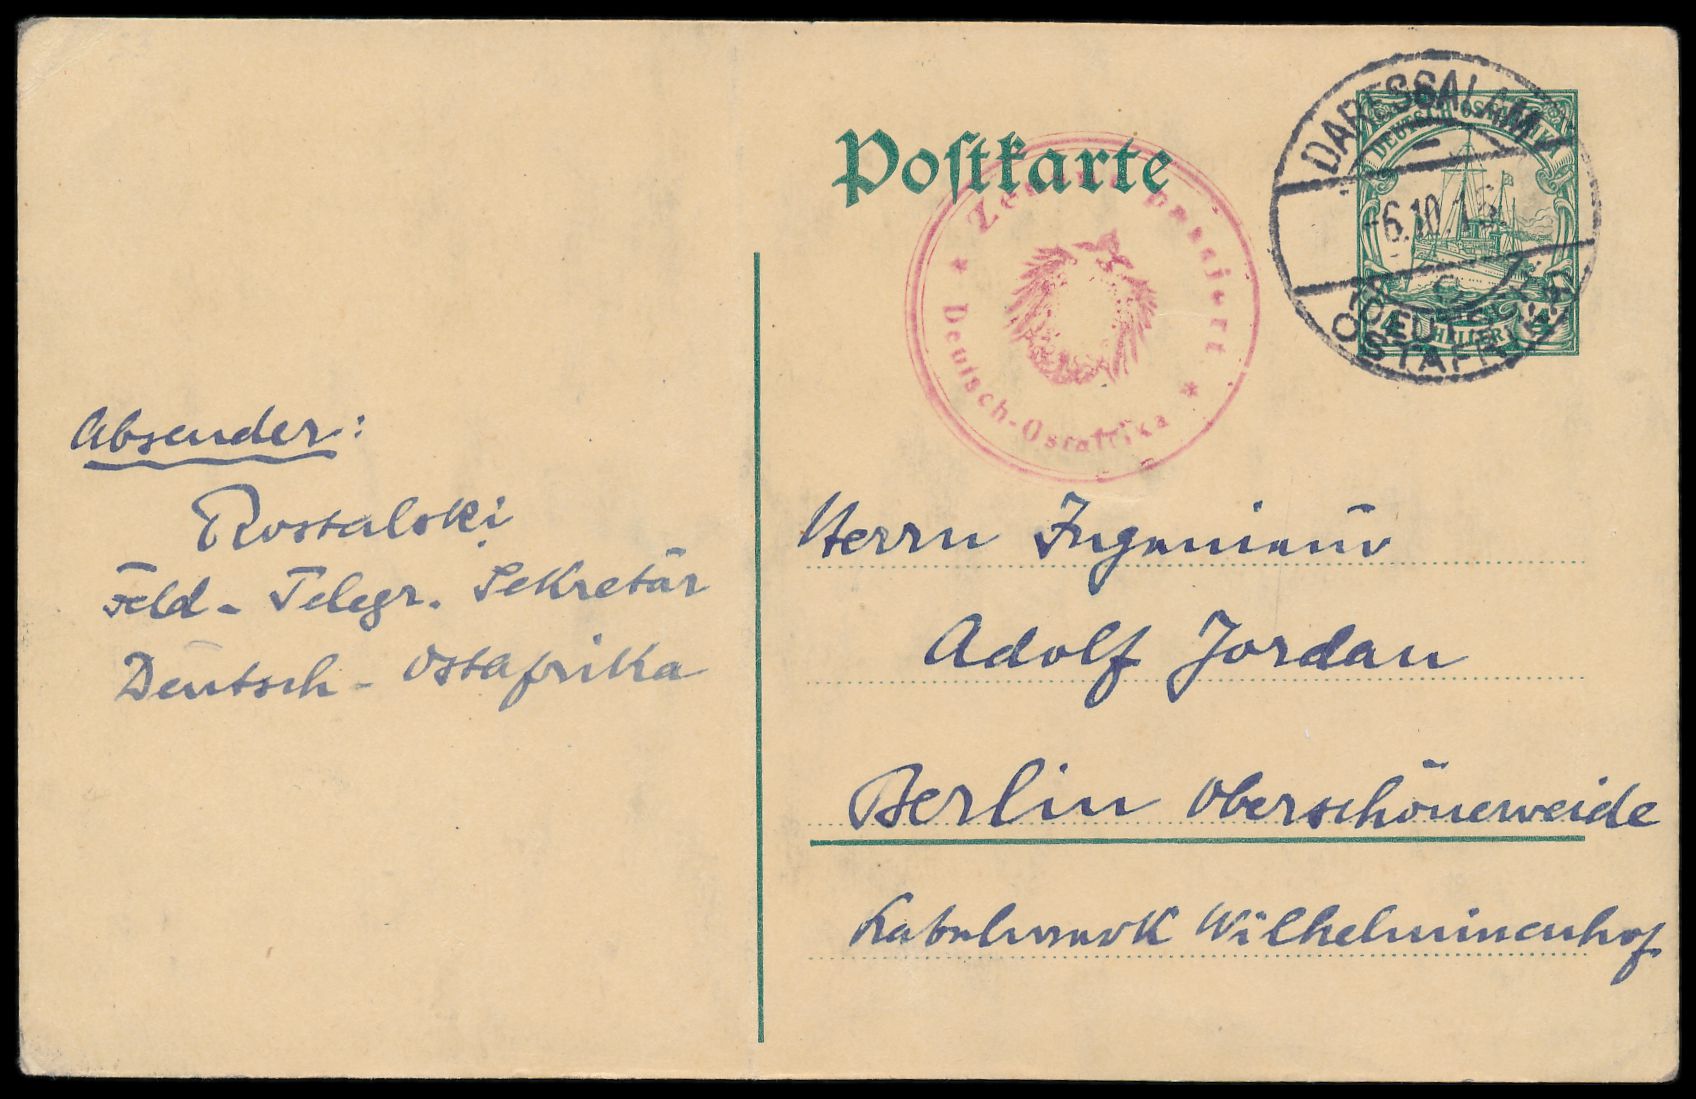 Postkarte
DEUTSCH-OSTAFRIKA
4 HELLER 4
DARESSALAM
6.10.15
DEUTSCH-
OSTAFRIKA
Zensur passiert
* Deutsch-Ostafrika *
Absender:
Rostalski
Feld-Telegr. Sekretär
Deutsch-Ostafrika
Herrn Ingenieur
Adolf Jordan
Berlin Oberschöneweide
Kabelwerk Wilhelminenhof